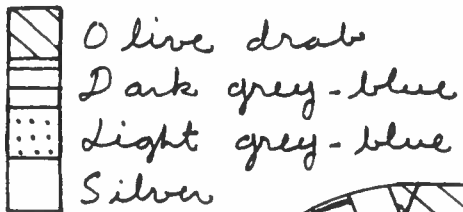 Olive drab
Dark grey-blue
Light grey-blue
Silver